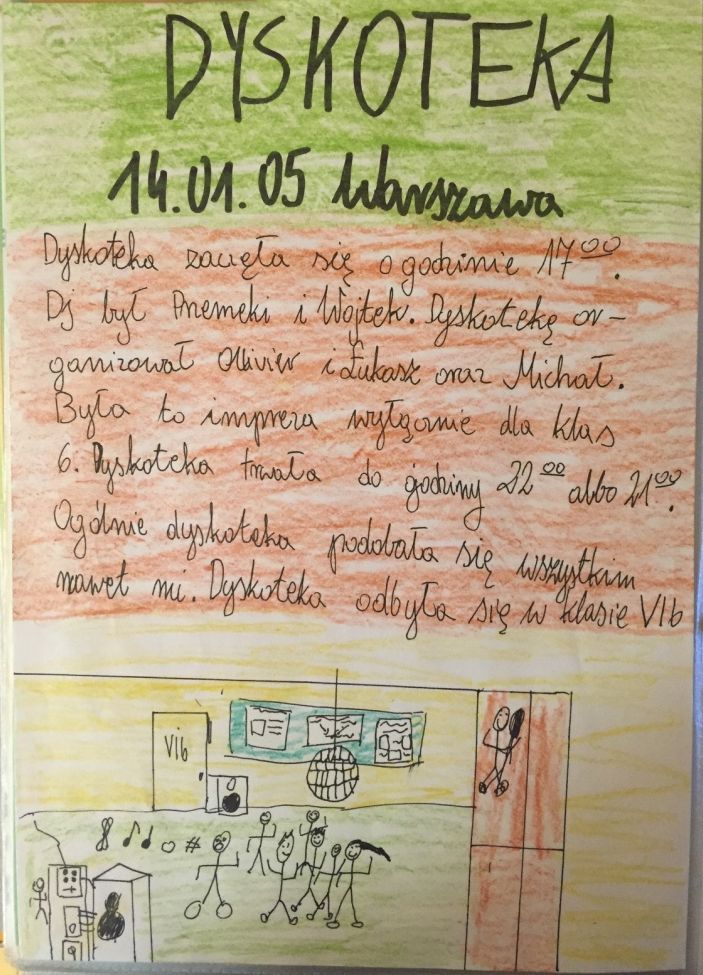 DYSKOTEKA
14.01.05 Warszawa
Dyskoteka zaczęła się o godzinie 17⁰⁰.
Dj był Przemeki i Wojtek. Dyskotekę or-
ganizował Olivier i Łukasz oraz Michał.
Była to impreza wyłącznie dla klas
6. Dyskoteka trwała do godziny 22⁰⁰ albo 21⁰⁰.
Ogólnie dyskoteka podobała się wszystkim
nawet mi. Dyskoteka odbyła się w klasie VIb
VIb